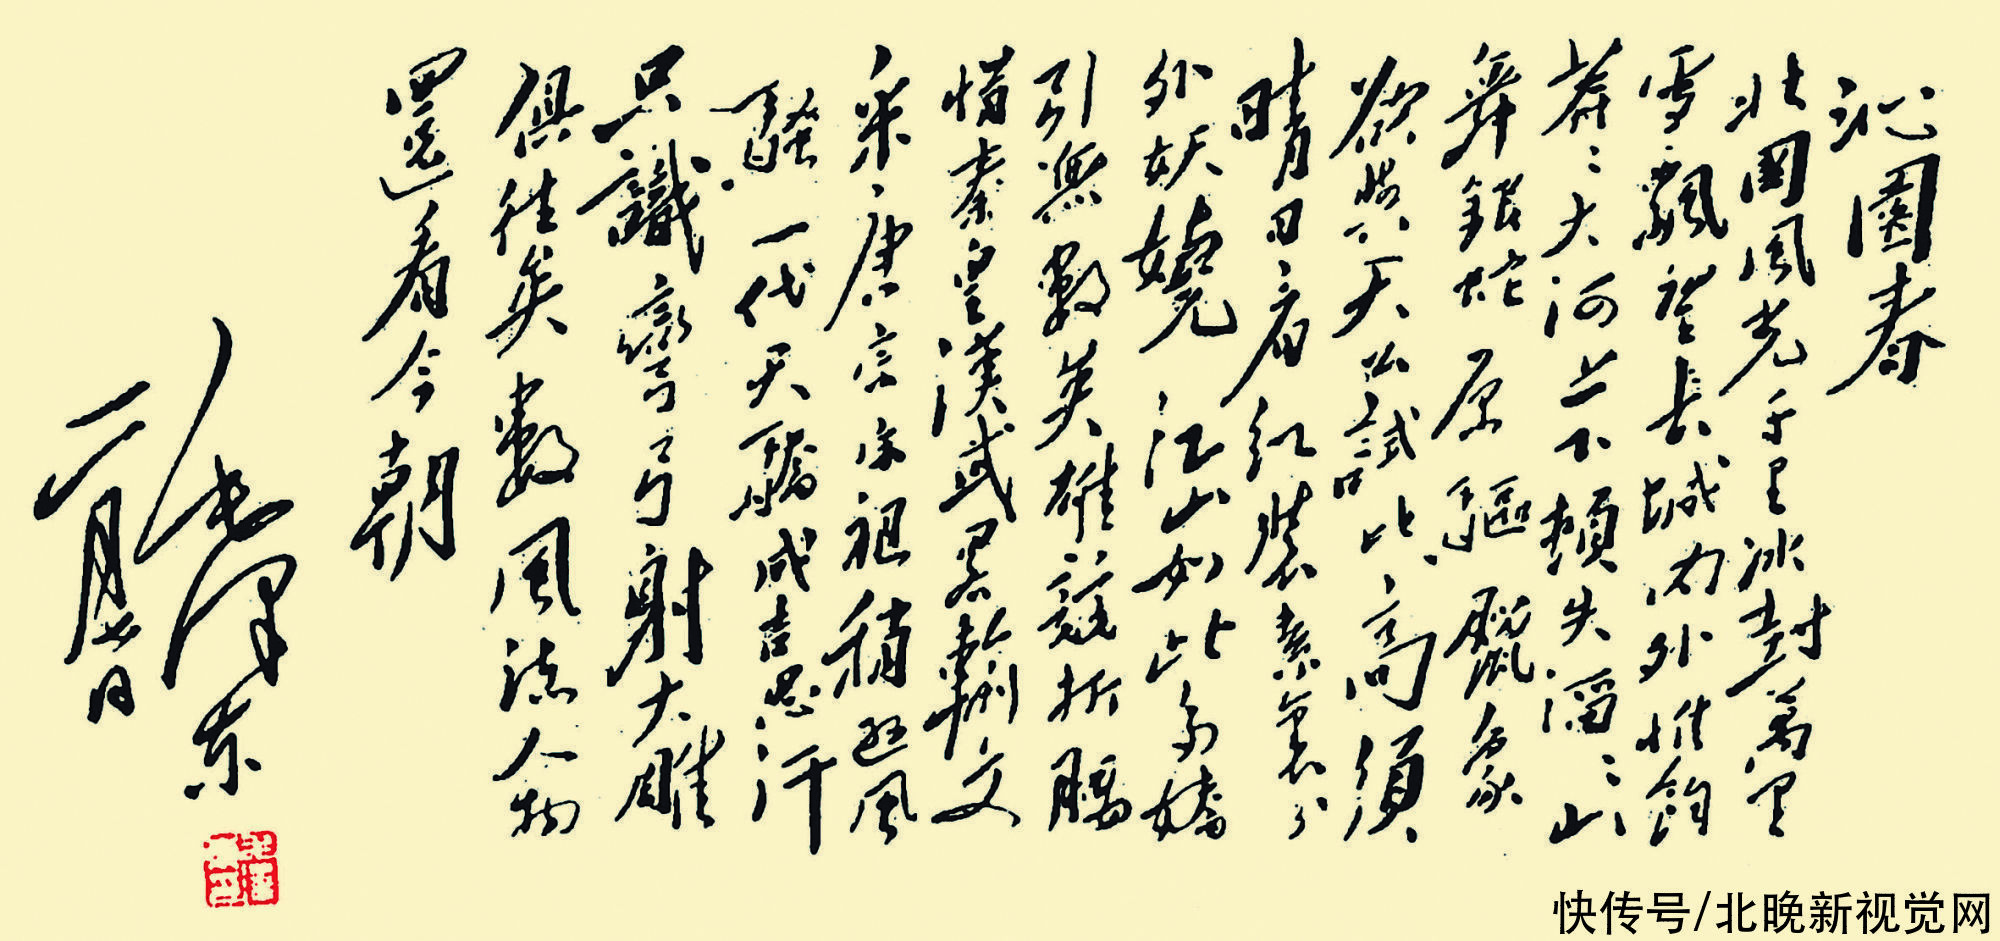 沁園春
北國風光千里冰封萬里
雪飄望長城內外惟餘
莽〻大河上下頓失滔〻山
舞銀蛇原驅臘象
欲與天公試比高須
晴日看紅裝素裹分
外妖嬈江山如此多嬌
引無數英雄競折腰
惜秦皇漢武略輸文
采唐宗宋祖稍遜風
騷一代天驕成吉思汗
只識彎弓射大雕
俱往矣數風流人物
還看今朝
毛澤東
二月七日
快传号/北晚新视觉网